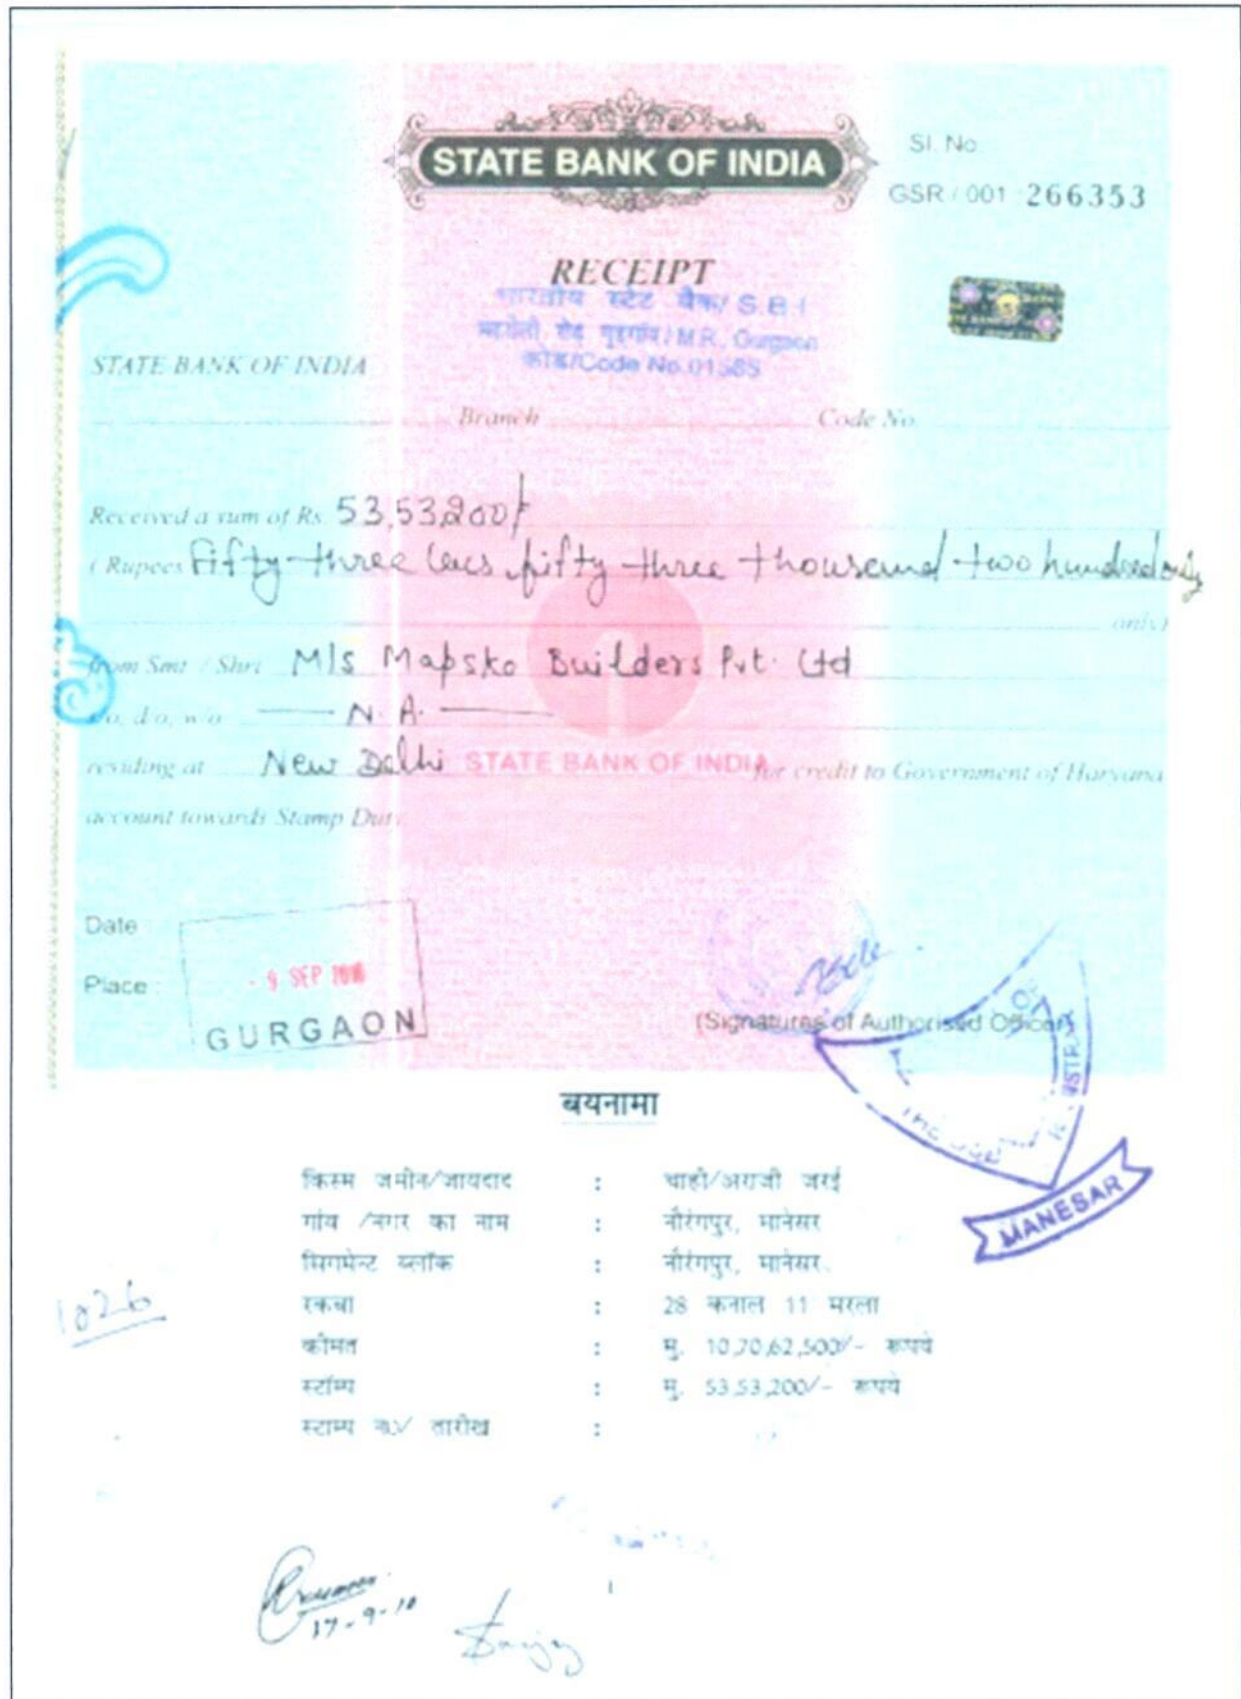 STATE BANK OF INDIA
Sl. No.
GSR / 001 266353
RECEIPT
भारतीय स्टेट बैंक/ S.B.I
महरौली रोड गुड़गांव/M.R. Gurgaon
कोड/Code No.01585
STATE BANK OF INDIA
Branch Code No.
Received a sum of Rs. 53,53,200/-
( Rupees Fifty three lacs fifty three thousand two hundred only
only)
from Smt. / Shri M/s Mapsko Builders Pvt. Ltd
s/o, d/o, w/o N. A.
residing at New Delhi for credit to Government of Haryana
STATE BANK OF INDIA
account towards Stamp Duty
Date
- 9 SEP 2010
Place :
GURGAON
(Signatures of Authorised Officer)
MANESAR
बयनामा
किस्म जमीन/जायदाद : चाही/अराजी जरई
गांव /नगर का नाम : नौरंगपुर, मानेसर
सिगमेन्ट ब्लॉक : नौरंगपुर, मानेसर.
रकबा : 28 कनाल 11 मरला
कीमत : मु. 10,70,62,500/- रूपये
स्टॉम्प : मु. 53,53,200/- रूपये
स्टाम्प न०/ तारीख :
1026
17-9-10
Sanjay